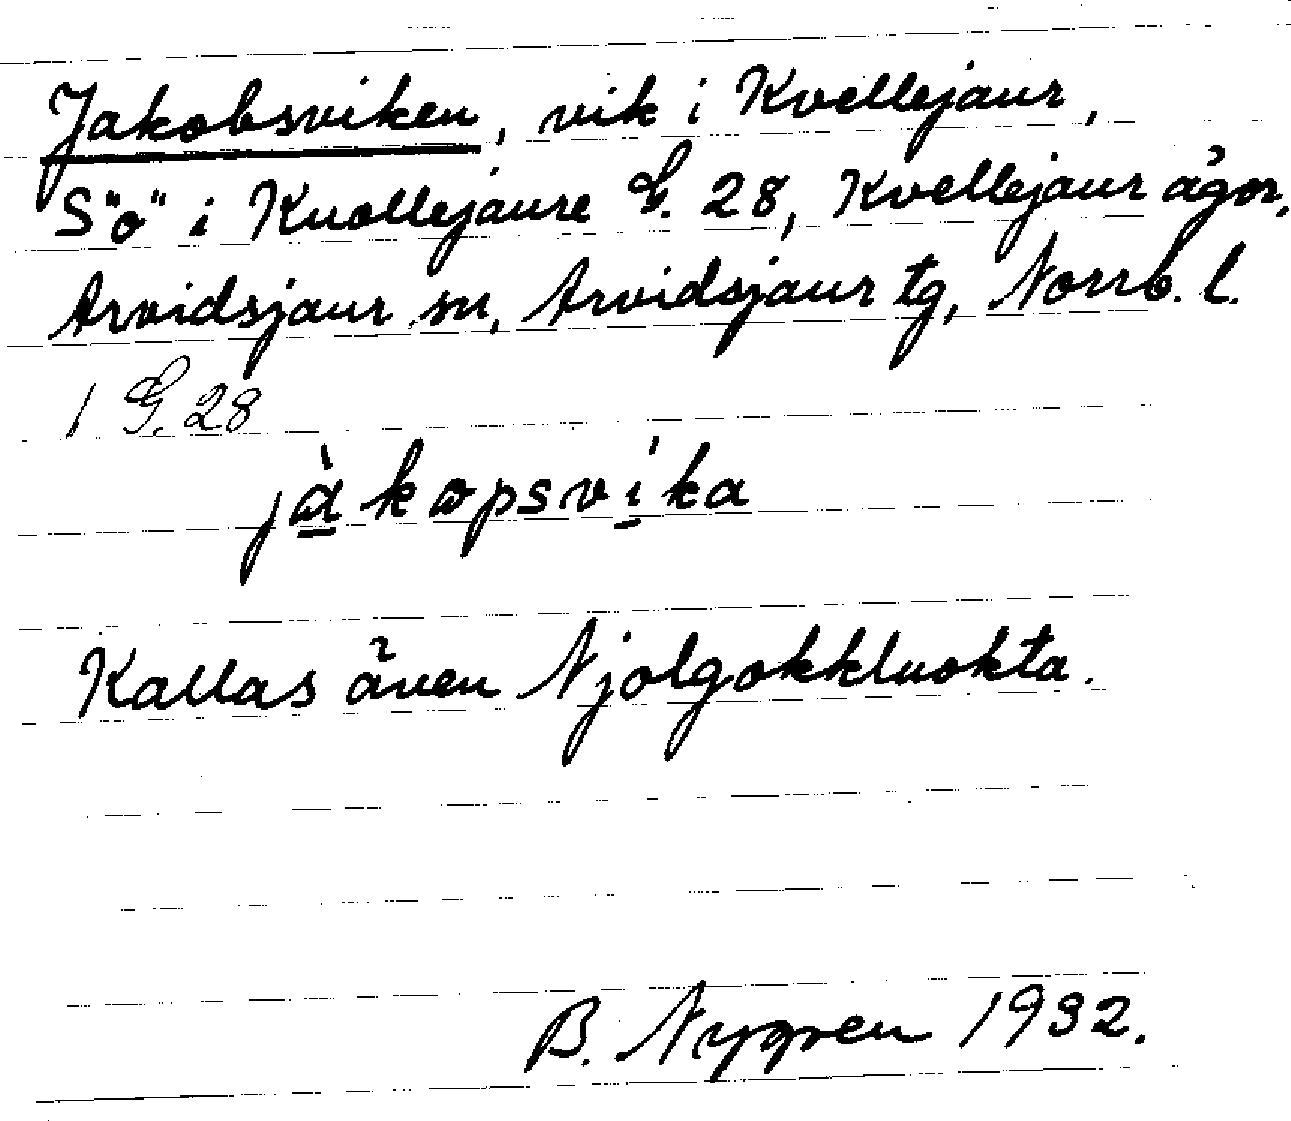 Jakobsviken, vik i Kvellejaur,
S"o" i Kuollejaure G. 28, Kvellejaur ägor,
Arvidsjaur sn, Arvidsjaur tg, Norrb. l.
1 G. 28
jàkopsvíka
Kallas även Njolgokkluokta.
B. Nygren 1932.